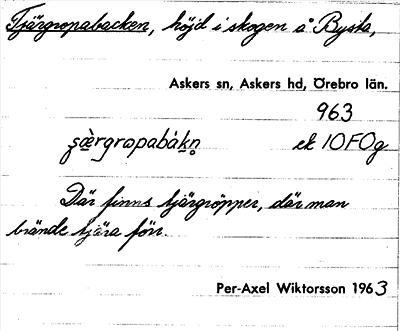 Tjärgropabacken, höjd i skogen å Bysta,
Askers sn, Askers hd, Örebro län.
963
ek 10F0g
Där finns tjärgröpper, där man
brände tjära förr.
Per-Axel Wiktorsson 1963